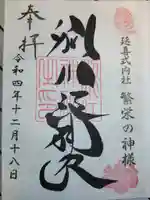 延喜式内社
繁栄の神様
別小江神社
奉拝
令和四年十二月十八日